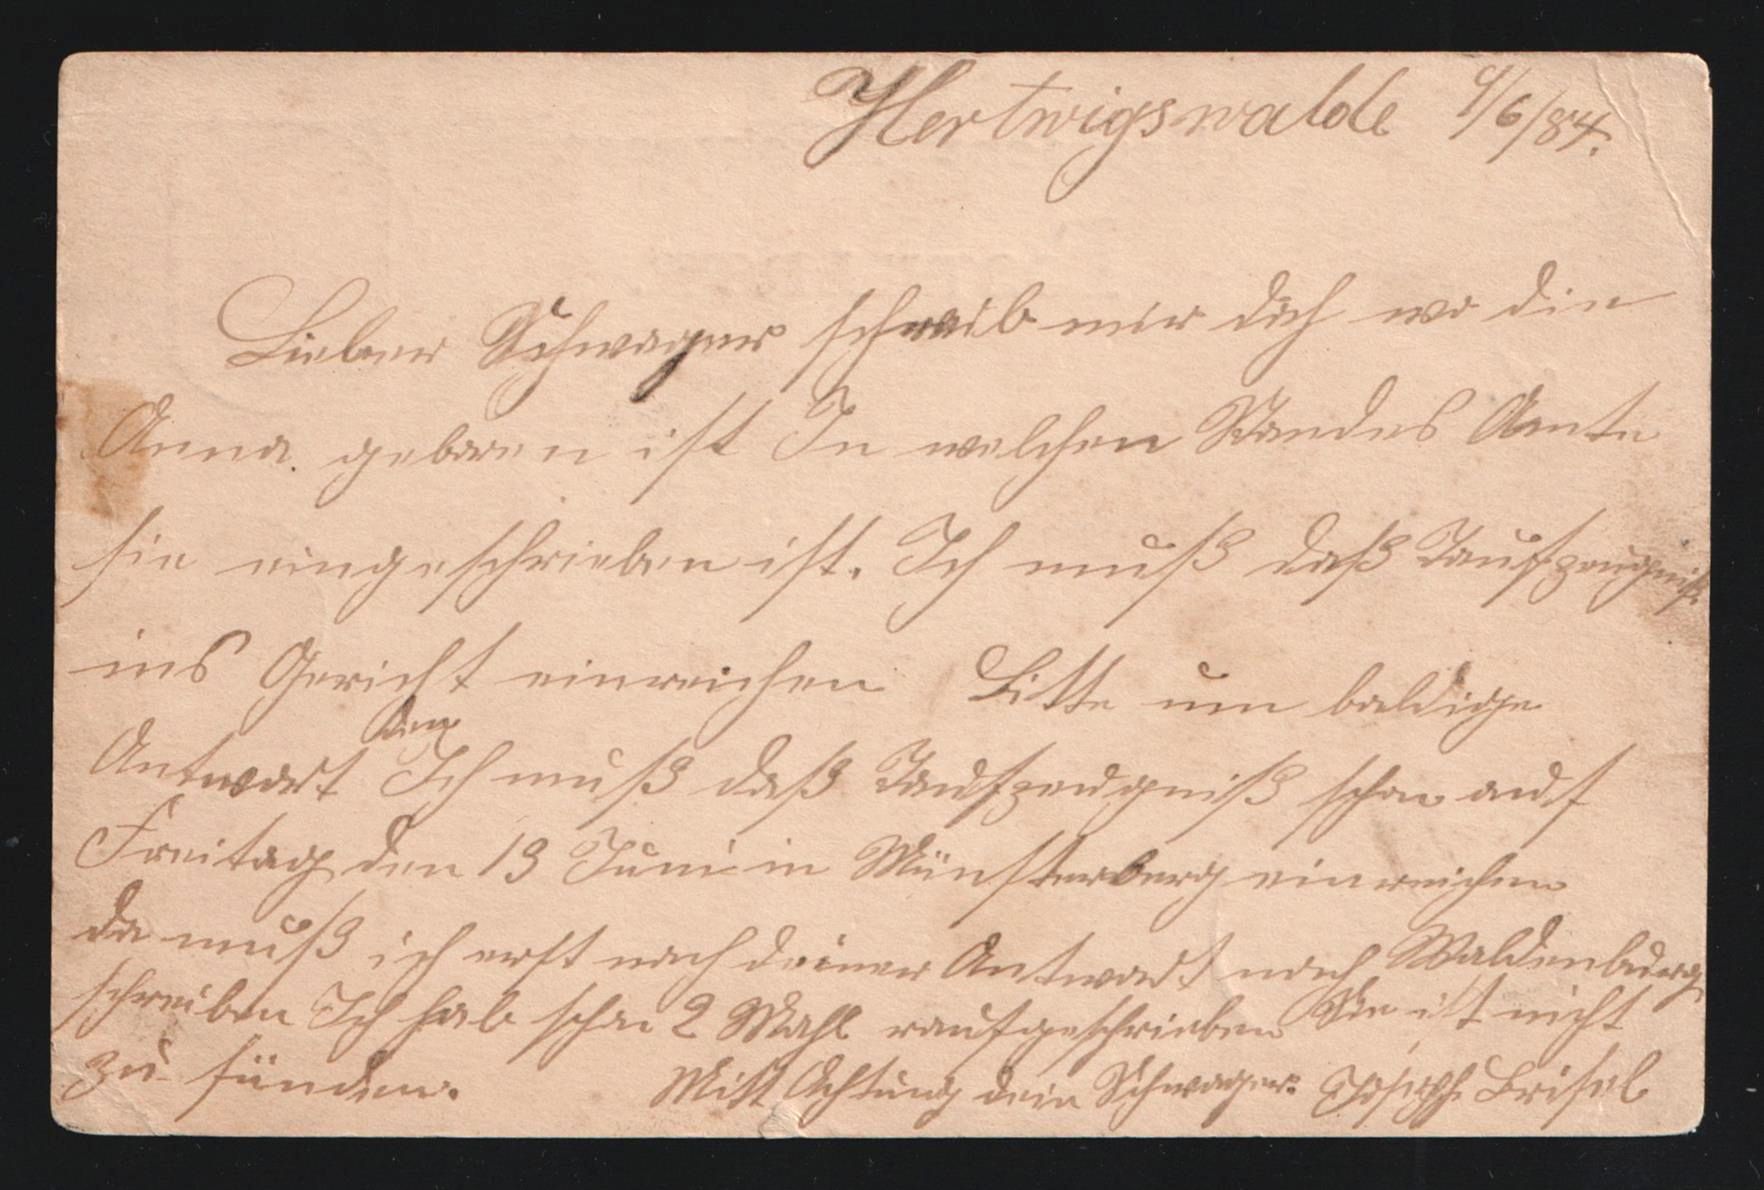 Hertwigswalde 9/6/84.
Lieber Schwager schreib mir doch wo die
Anna geboren ist In welchen Standes Amte
sie eingeschrieben ist. Ich muß daß Taufzeugniß
ins Gericht einreichen Bitte um baldige
den
Antwort Ich muß daß Taufzeugniß schon auf
Freitag den 13 Juni in Münsterberg einreichen
da muß ich erst nach deiner Antwort nach Waldenburg
schreiben Ich hab schon 2 Mahl raufgeschrieben Sie ist nicht
zu finden. Mitt Achtung dein Schwager. Joseph